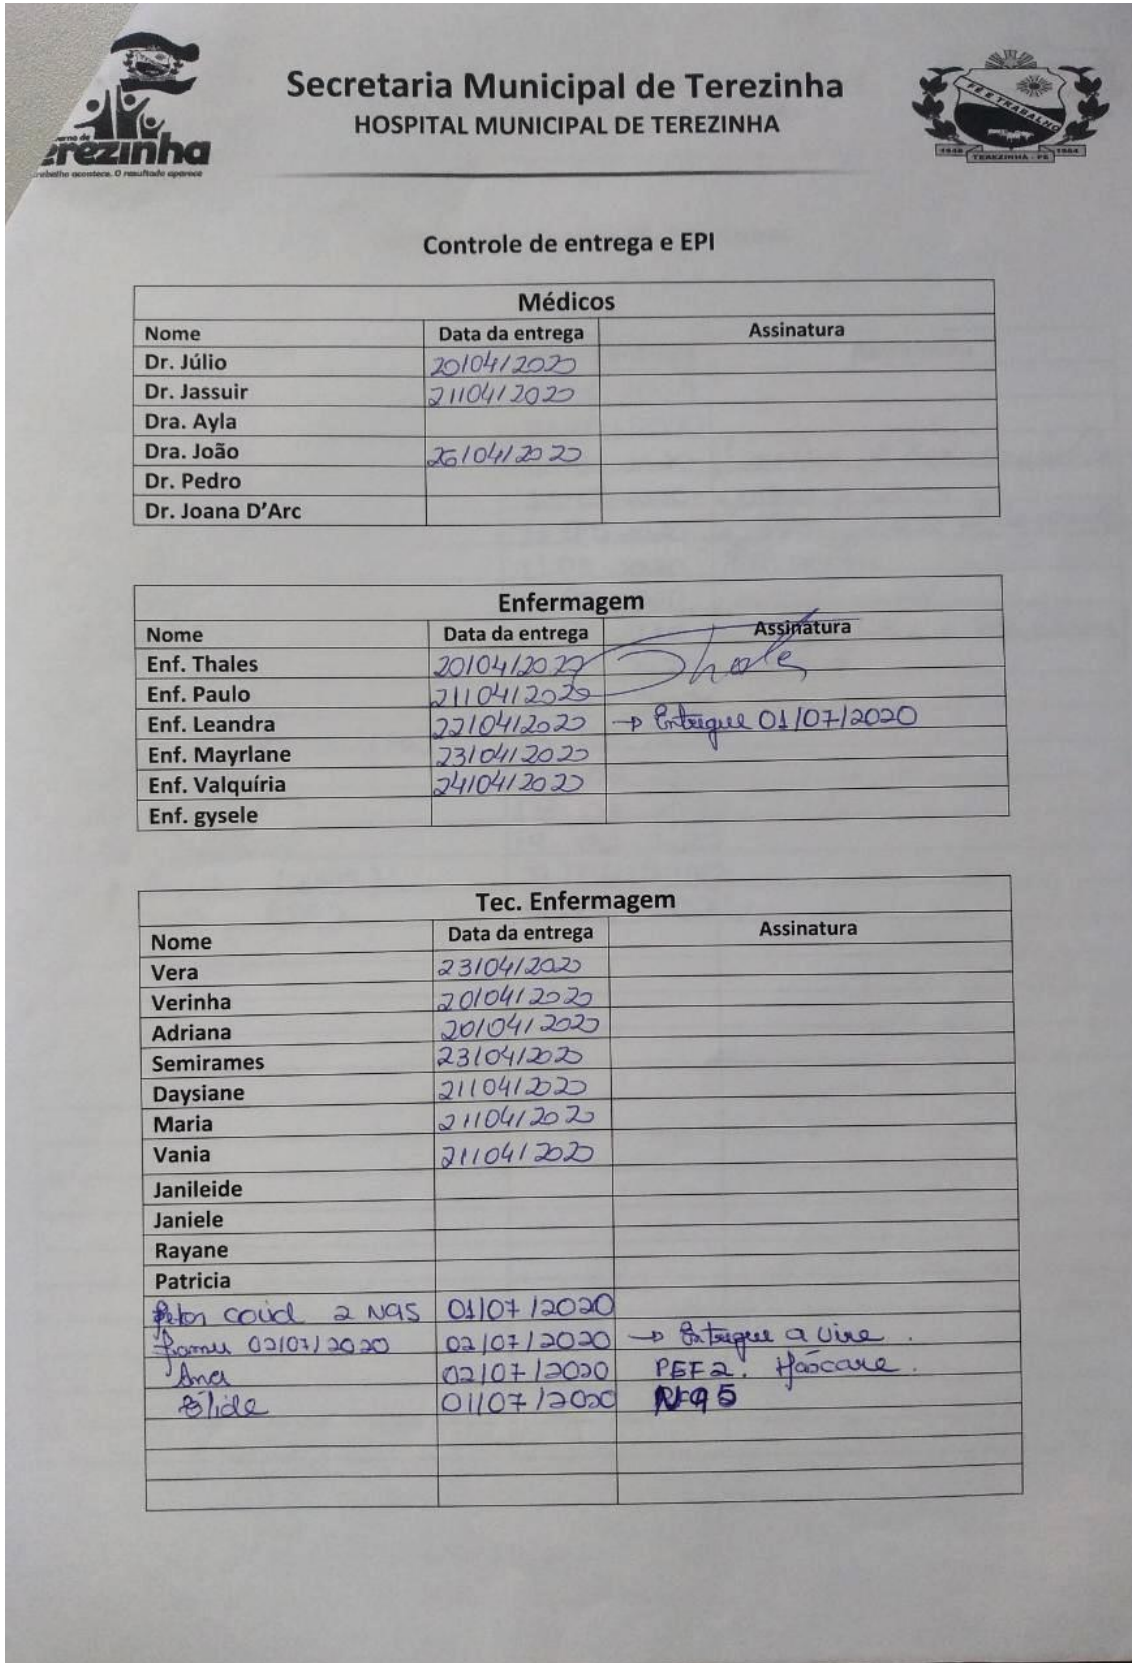 erno de
erezinha
rabalho acontece. O resultado aparece
Secretaria Municipal de Terezinha
HOSPITAL MUNICIPAL DE TEREZINHA
FÉ E TRABALHO
TEREZINHA - PE
Controle de entrega e EPI
Médicos
Nome Data da entrega Assinatura
Dr. Júlio 20/04/2020
Dr. Jassuir 21/04/2020
Dra. Ayla
Dra. João 26/04/2020
Dr. Pedro
Dr. Joana D'Arc
Enfermagem
Nome Data da entrega Assinatura
Enf. Thales 20/04/2020 Thales
Enf. Paulo 21/04/2020
Enf. Leandra 22/04/2020 → Entregue 01/07/2020
Enf. Mayrlane 23/04/2020
Enf. Valquíria 24/04/2020
Enf. gysele
Tec. Enfermagem
Nome Data da entrega Assinatura
Vera 23/04/2020
Verinha 20/04/2020
Adriana 20/04/2020
Semirames 23/04/2020
Daysiane 21/04/2020
Maria 21/04/2020
Vania 21/04/2020
Janileide
Janiele
Rayane
Patricia
covid 2 N95 01/07/2020
02/07/2020 02/07/2020 → Entregue a
Ana 02/07/2020 PEF2. Máscara.
Élide 01/07/2020 N95